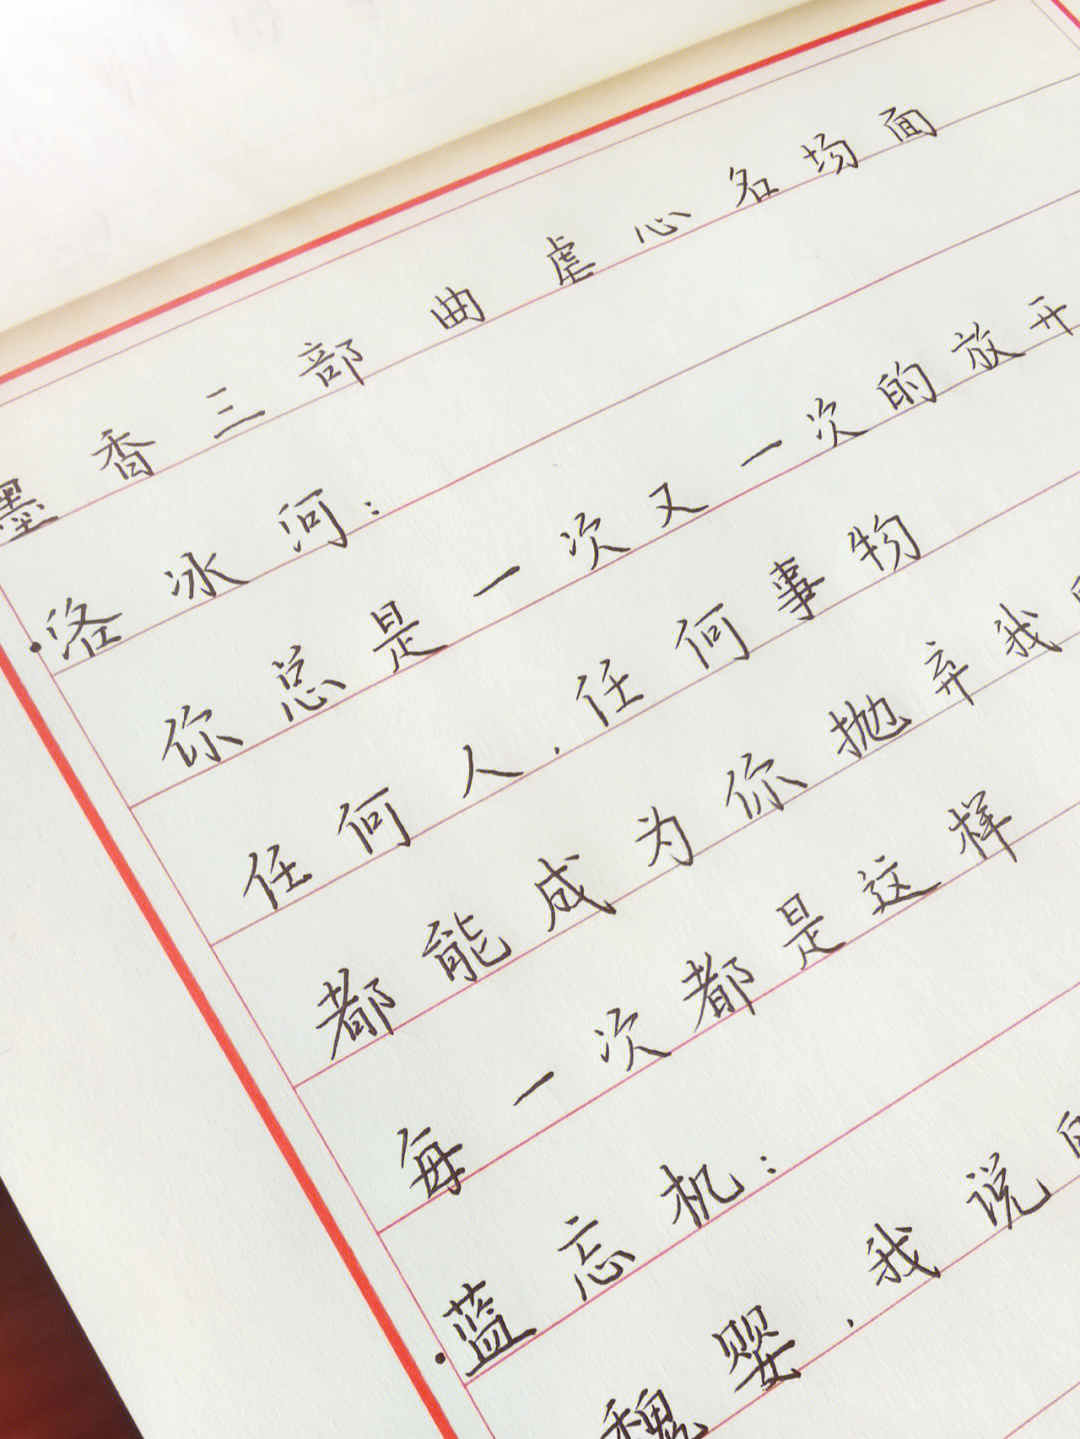 墨香三部曲虐心名场面
·洛冰河：
你总是一次又一次的放开
任何人，任何事物
都能成为你抛弃我
每一次都是这样
·蓝忘机：
魏婴，我说